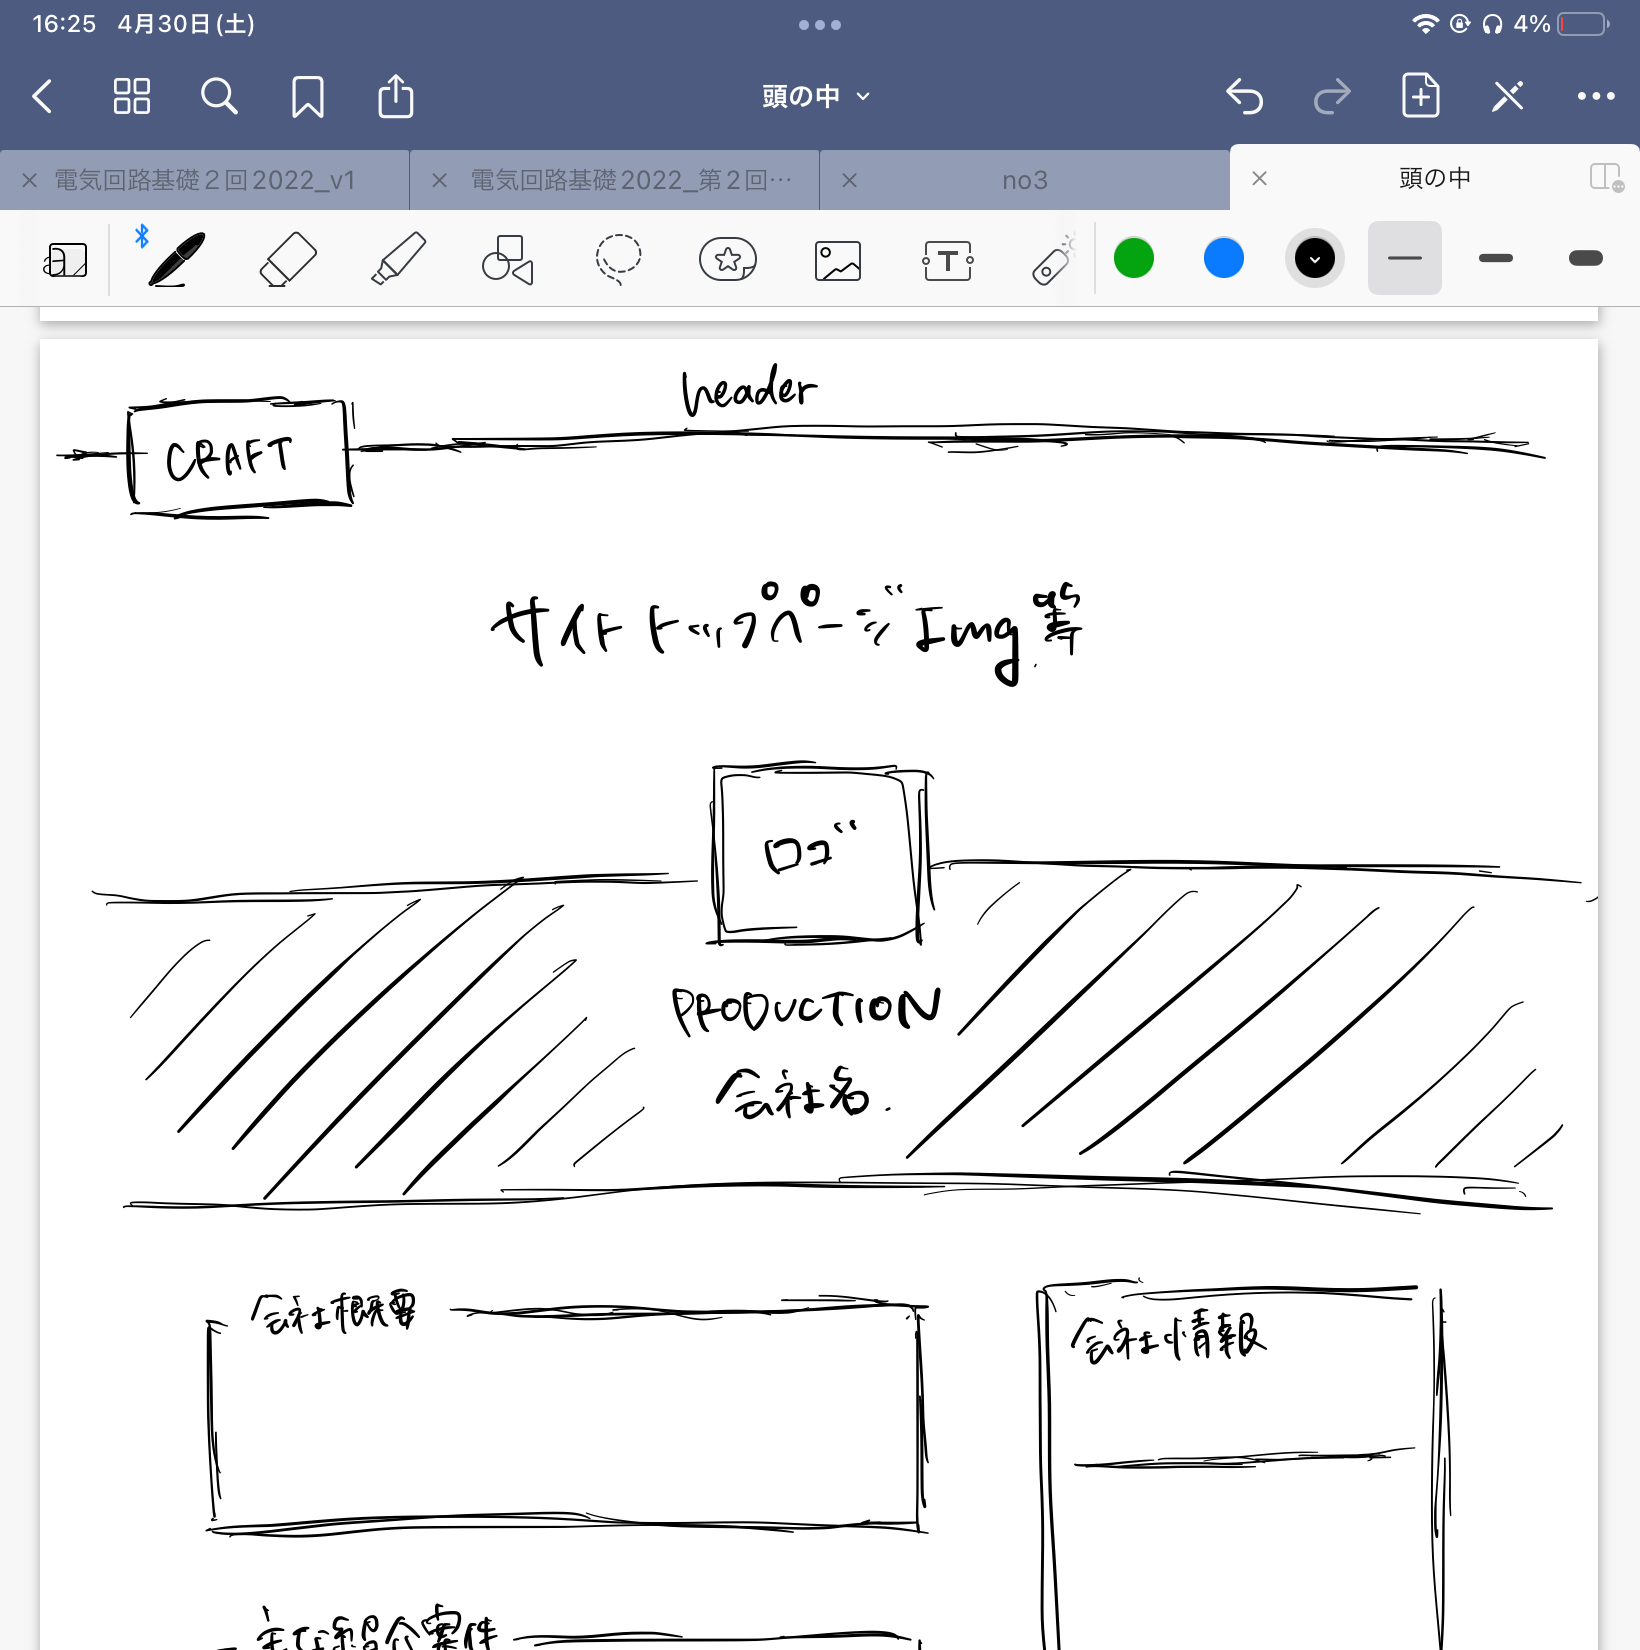 16:25 4月30日(土)
4%
頭の中
電気回路基礎2回2022_v1
電気回路基礎2022_第2回…
no3
頭の中
T
header
CRAFT
サイトトップページImg等
ロゴ
PRODUCTION
会社名.
会社概要
会社情報
主な紹介案件